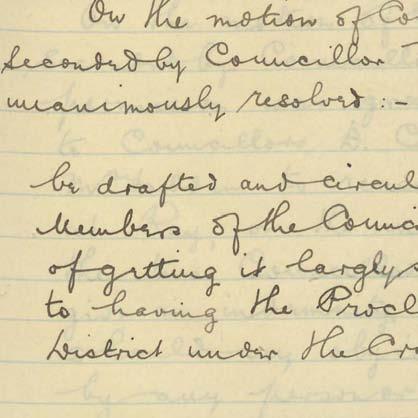 On the motion of Co
seconded by Councillor
unanimously resolved :-
be drafted and circul
Members of the Counci
of getting it largly s
to having the Procl
District under the Cr